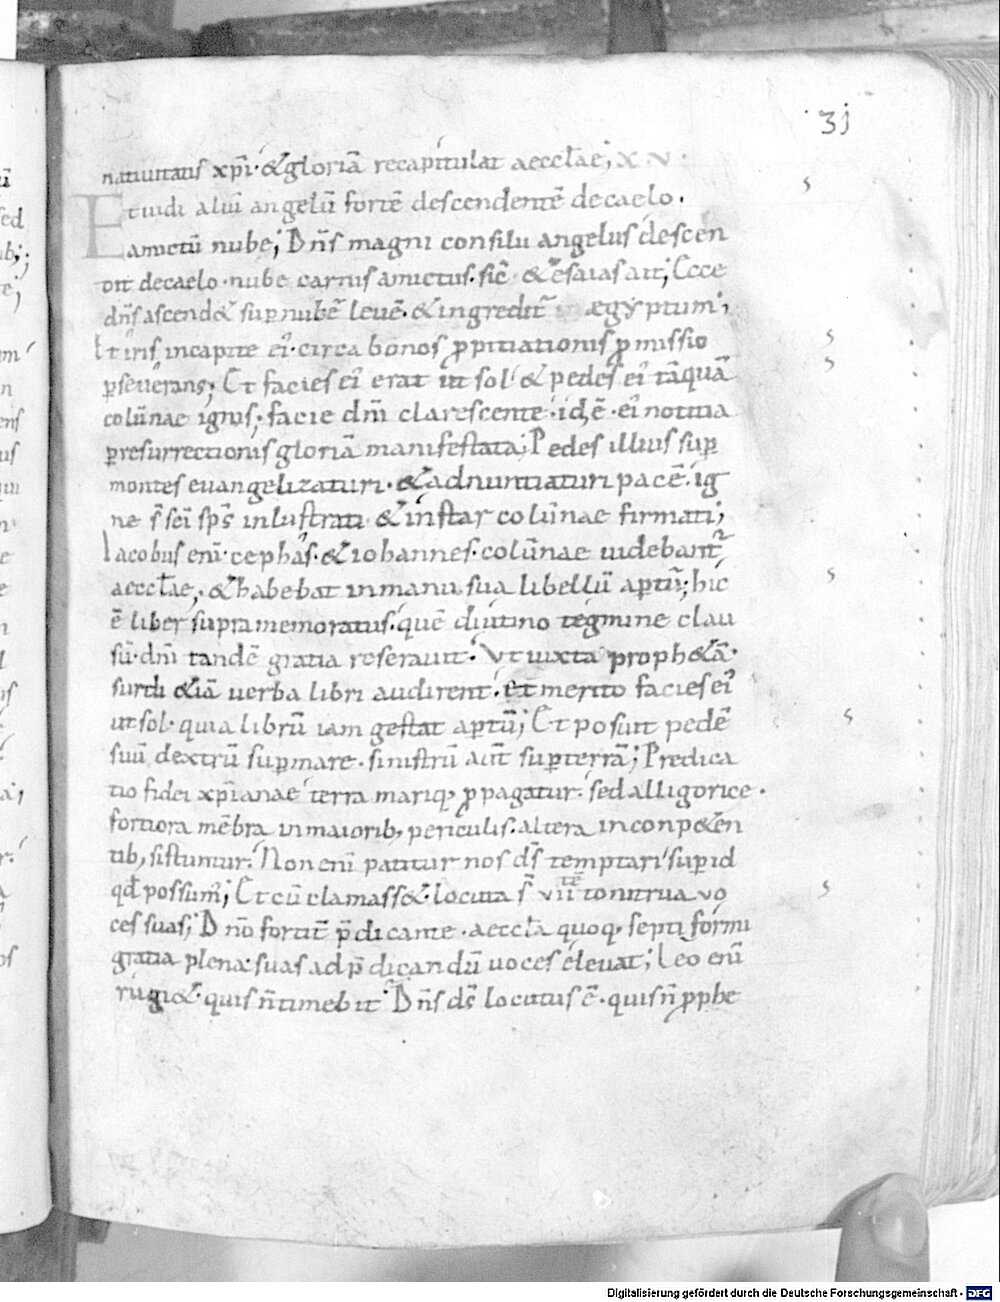 31
natiuitatis xp̄i· & gloriā recapitulat aecclae; XV
Et uidi aliū angelū fortē descendentē decaelo·
amictū nube; Dn̄s magni consilii angelus descen
dit decaelo· nube carnis amictus· sic̄ & esaias ait; Ecce
dn̄s ascend& sup nubē leuē· & ingredit̄ ægyptum;
Et iris incapite ei'· circa bonos ꝓpitiationis ꝓmissio
ꝑseuerans; Et facies ei' erat ut sol· & pedes ei' tāquā
colūnae ignis; facie dn̄i clarescente· id,ē· ei' notitia
ꝑresurrectionis gloriā manifestata; Pedes illius suꝑ
montes euangelizaturi· & adnuntiaturi pacē· ig
ne s̄ sc̄i sp̄s inlustrati & instar colūnae firmati;
Iacobus enī· cephas· & iohannes· colūnae uidebant̄
aecclae; & habebat inmanu sua libellū aptū; hic
ē liber supramemoratus· quē diutino tegmine clau
sū· dn̄i tandē gratia reserauit· Vt iuxta proph&ā·
surdi &iā uerba libri audirent· et merito facies ei'
ut sol· quia librū iam gestat aptū; Et posuit pedē
suū dextrū suꝑmare· sinistrū aut̄ suꝑterrā; Predica
tio fidei xp̄ianae terra mariq; ꝓpagatur· sed alligorice·
fortiora mēbra inmaiorib; periculis· altera inconp&en
tib; sistuntur· Non enī patitur nos d̄s temptari supid
qd̄ possum'; Et cū clamass&· locuta s̄ vii tē tonitrua uo
ces suas; Dn̄o fortit̄ p̄dicante· aeccla quoq; septiformi
gratia plena· suas adp̄dicandū uoces eleuat; Leo enī
rugi& quis n̄ timebit· Dn̄s d̄s locutus ē· quis n̄ ꝓphe
Digitalisierung gefördert durch die Deutsche Forschungsgemeinschaft - DFG